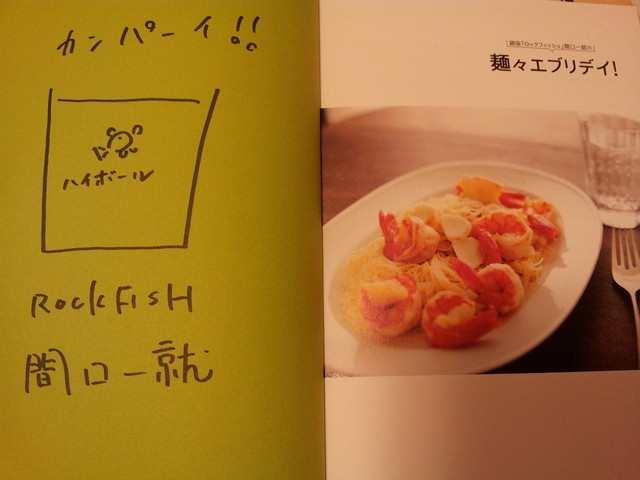 カンパーイ!!
ハイボール
ROCKFISH
間口一就
銀座「ロックフィッシュ」間口一就の
麺々エブリデイ!